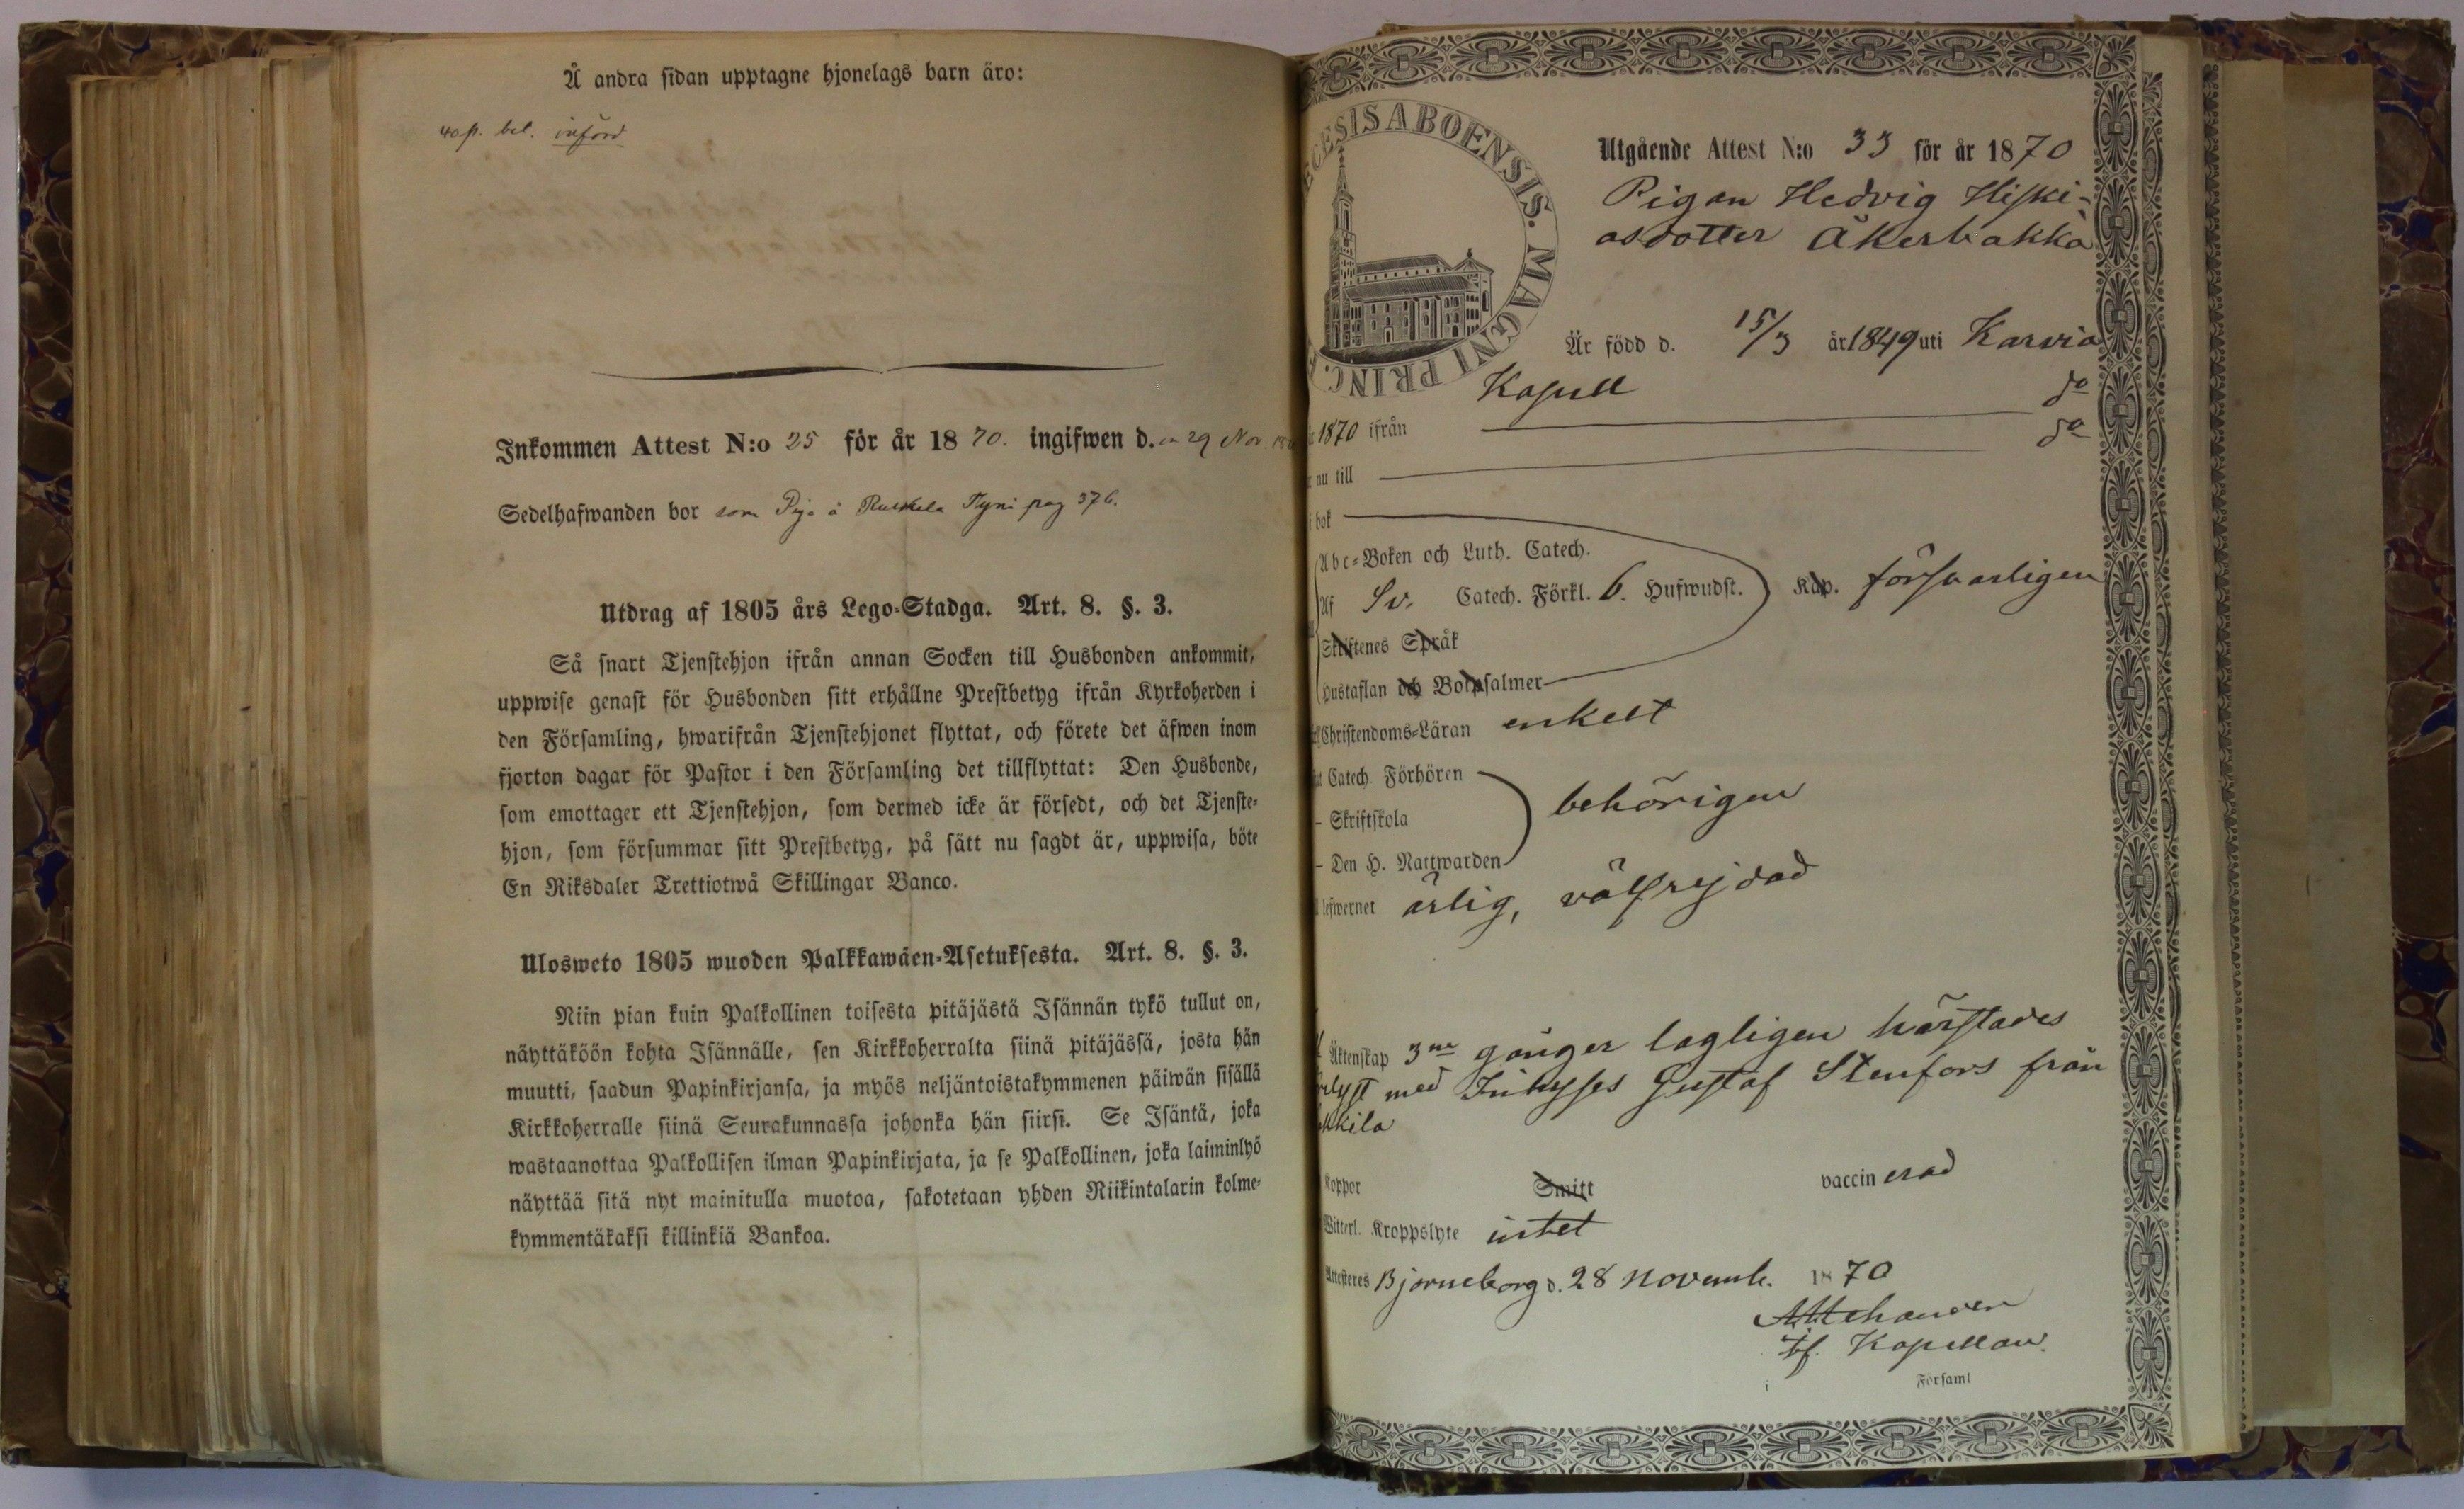 Å andra sidan upptagne hjonelags barn äro:
40 p. bet. införd
Inkommen Attest N:o 25 för år 1870. ingifwen d.en 29 Nov.
Sedelhafwanden bor som Piga å Tyni pag 376.
Utdrag af 1805 års Lego-Stadga. Art. 8. §. 3.
Så snart Tjenstehjon ifrån annan Socken till Husbonden ankommit,
uppwise genast för Husbonden sitt erhållne Prestbetyg ifrån Kyrkoherden i
den Församling, hwarifrån Tjenstehjonet flyttat, och förete det äfwen inom
fjorton dagar för Pastor i den Församling det tillflyttat: Den Husbonde,
som emottager ett Tjenstehjon, som dermed icke är försedt, och det Tjenste-
hjon, som försummar sitt Prestbetyg, på sätt nu sagdt är, uppwisa, böte
En Riksdaler Trettiotwå Skillingar Banco.
Ulosweto 1805 wuoden Palkkawäen-Asetuksesta. Art. 8. §. 3.
Niin pian kuin Palkollinen toisesta pitäjästä Isännän tykö tullut on,
näyttäköön kohta Isännälle, sen Kirkkoherralta siinä pitäjässä, josta hän
muutti, saadun Papinkirjansa, ja myös neljäntoistakymmenen päiwän sisällä
Kirkkoherralle siinä Seurakunnassa johonka hän siirsi. Se Isäntä, joka
wastaanottaa Palkollisen ilman Papinkirjata, ja se Palkollinen, joka laiminlyö
näyttää sitä nyt mainitulla muotoa, sakotetaan yhden Riikintalarin kolme-
kymmentäkaksi killinkiä Bankoa.
ECESIS ABOENSIS. MAGNI PRINC.
Utgående Attest N:o 33 för år 1870
Pigan Hedvig Hiski-
asdotter Åkerbakka
Är född d. 15/3 år 1849 uti Karvia
Kapell do
1870 ifrån do
nu till
bok
Abc-Boken och Luth. Catech.
Af Sv. Catech. Förkl. 6. Hufwudst. Kap. försvarligen
Skriftenes Språk
Hustaflan och Botpsalmer
Christendoms-Läran enkelt
Catech. Förhören
- Skriftskola behörigen
- Den H. Nattwarden
lefwernet ärlig, välfrejdad
Äktenskap 3ne gånger lagligen härstädes
lyst med Inhyses Gustaf Stenfors från
kkila
Koppor Smitt vaccinerad
Witterl. Kroppslyte intet
Attesteres Björneborg d. 28 Novemb. 1870
tf. Kapellan.
i Församl